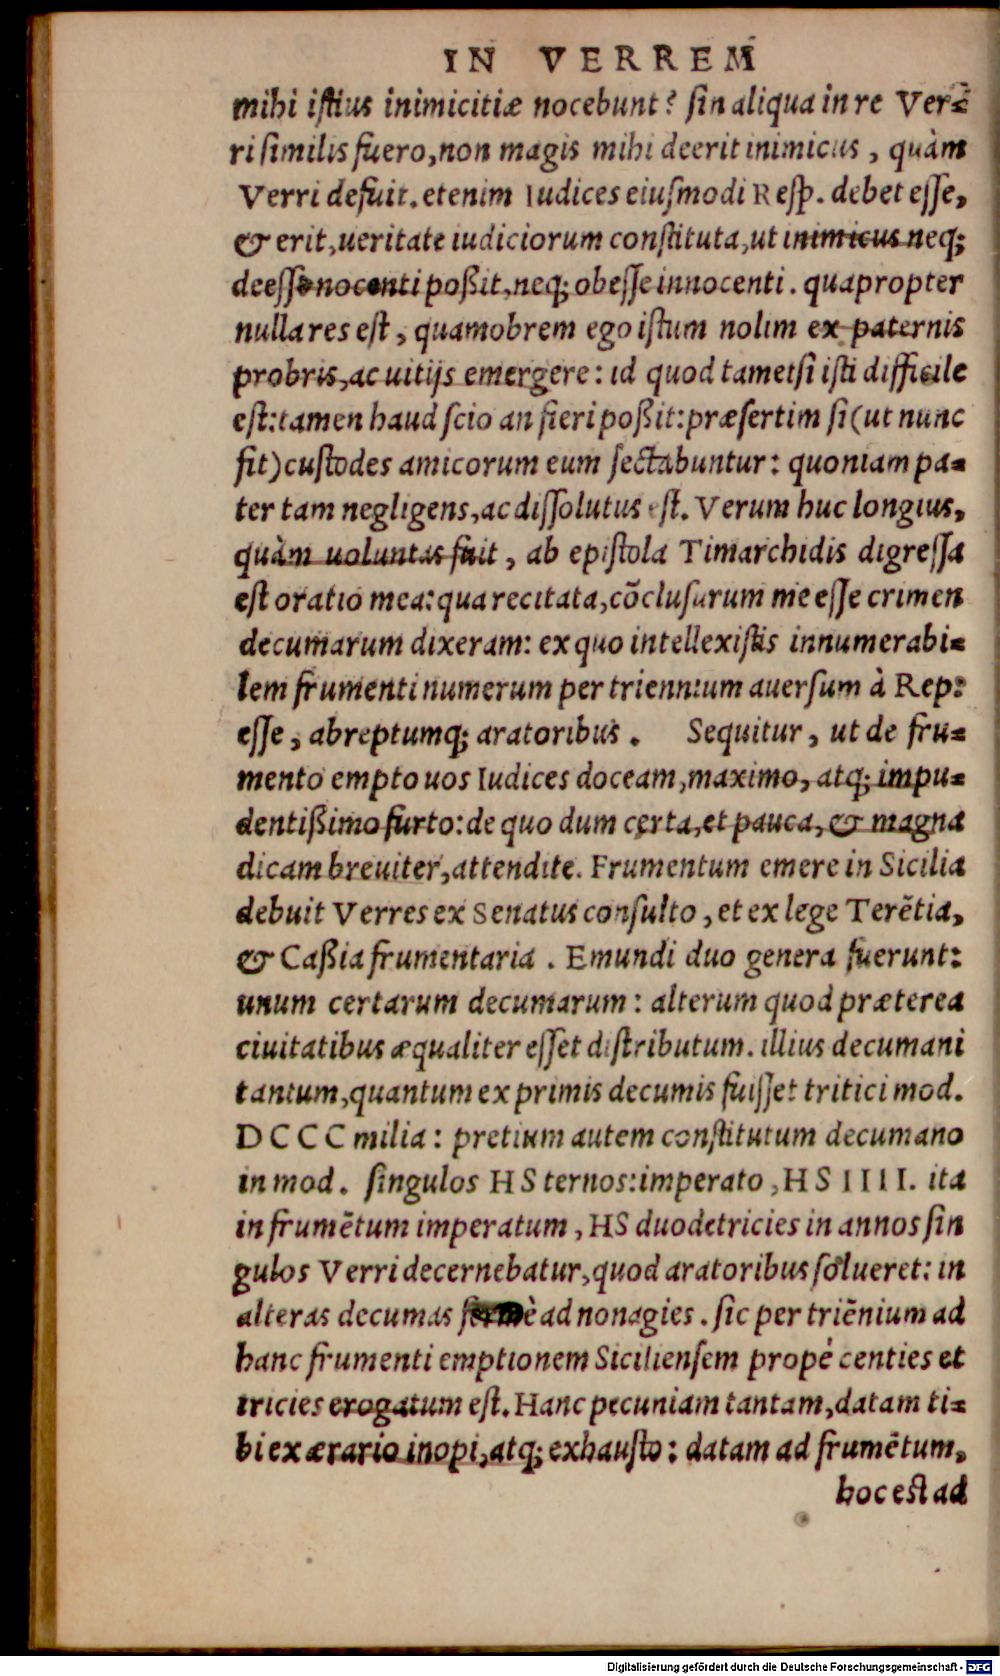 IN VERREM
mihi istius inimicitiæ nocebunt? sin aliqua in re Ver=
ri similis fuero, non magis mihi deerit inimicus, quàm
Verri defuit. etenim Iudices eiusmodi Resp. debet esse,
& erit, ueritate iudiciorum constituta, ut inimicus neq;
deesse nocenti poßit, neq; obesse innocenti. quapropter
nulla res est, quamobrem ego istum nolim ex paternis
probris, ac uitijs emergere: id quod tametsi isti difficile
est: tamen haud scio an fieri poßit: præsertim si (ut nunc
fit) custodes amicorum eum sectabuntur: quoniam pa=
ter tam negligens, ac dissolutus est. Verum huc longius,
quàm uoluntas fuit, ab epistola Timarchidis digressa
est oratio mea: qua recitata, cõclusurum me esse crimen
decumarum dixeram: ex quo intellexistis innumerabi=
lem frumenti numerum per triennium auersum à Rep:
esse, abreptumq; aratoribus. Sequitur, ut de fru=
mento empto uos Iudices doceam, maximo, atq; impu=
dentißimo furto: de quo dum certa, et pauca, & magna
dicam breuiter, attendite. Frumentum emere in Sicilia
debuit Verres ex Senatus consulto, et ex lege Terẽtia,
& Caßia frumentaria. Emundi duo genera fuerunt:
unum certarum decumarum: alterum quod præterea
ciuitatibus æqualiter esset distributum. illius decumani
tantum, quantum ex primis decumis fuisset tritici mod.
DCCC milia: pretium autem constitutum decumano
in mod. singulos HS ternos: imperato, HS IIII. ita
in frumẽtum imperatum, HS duodetricies in annos sin
gulos Verri decernebatur, quod aratoribus solueret: in
alteras decumas fermè ad nonagies. sic per triẽnium ad
hanc frumenti emptionem Siciliensem propè centies et
tricies erogatum est. Hanc pecuniam tantam, datam ti=
bi ex ærario inopi, atq; exhausto: datam ad frumẽtum,
hoc est ad
Digitalisierung gefördert durch die Deutsche Forschungsgemeinschaft - DFG